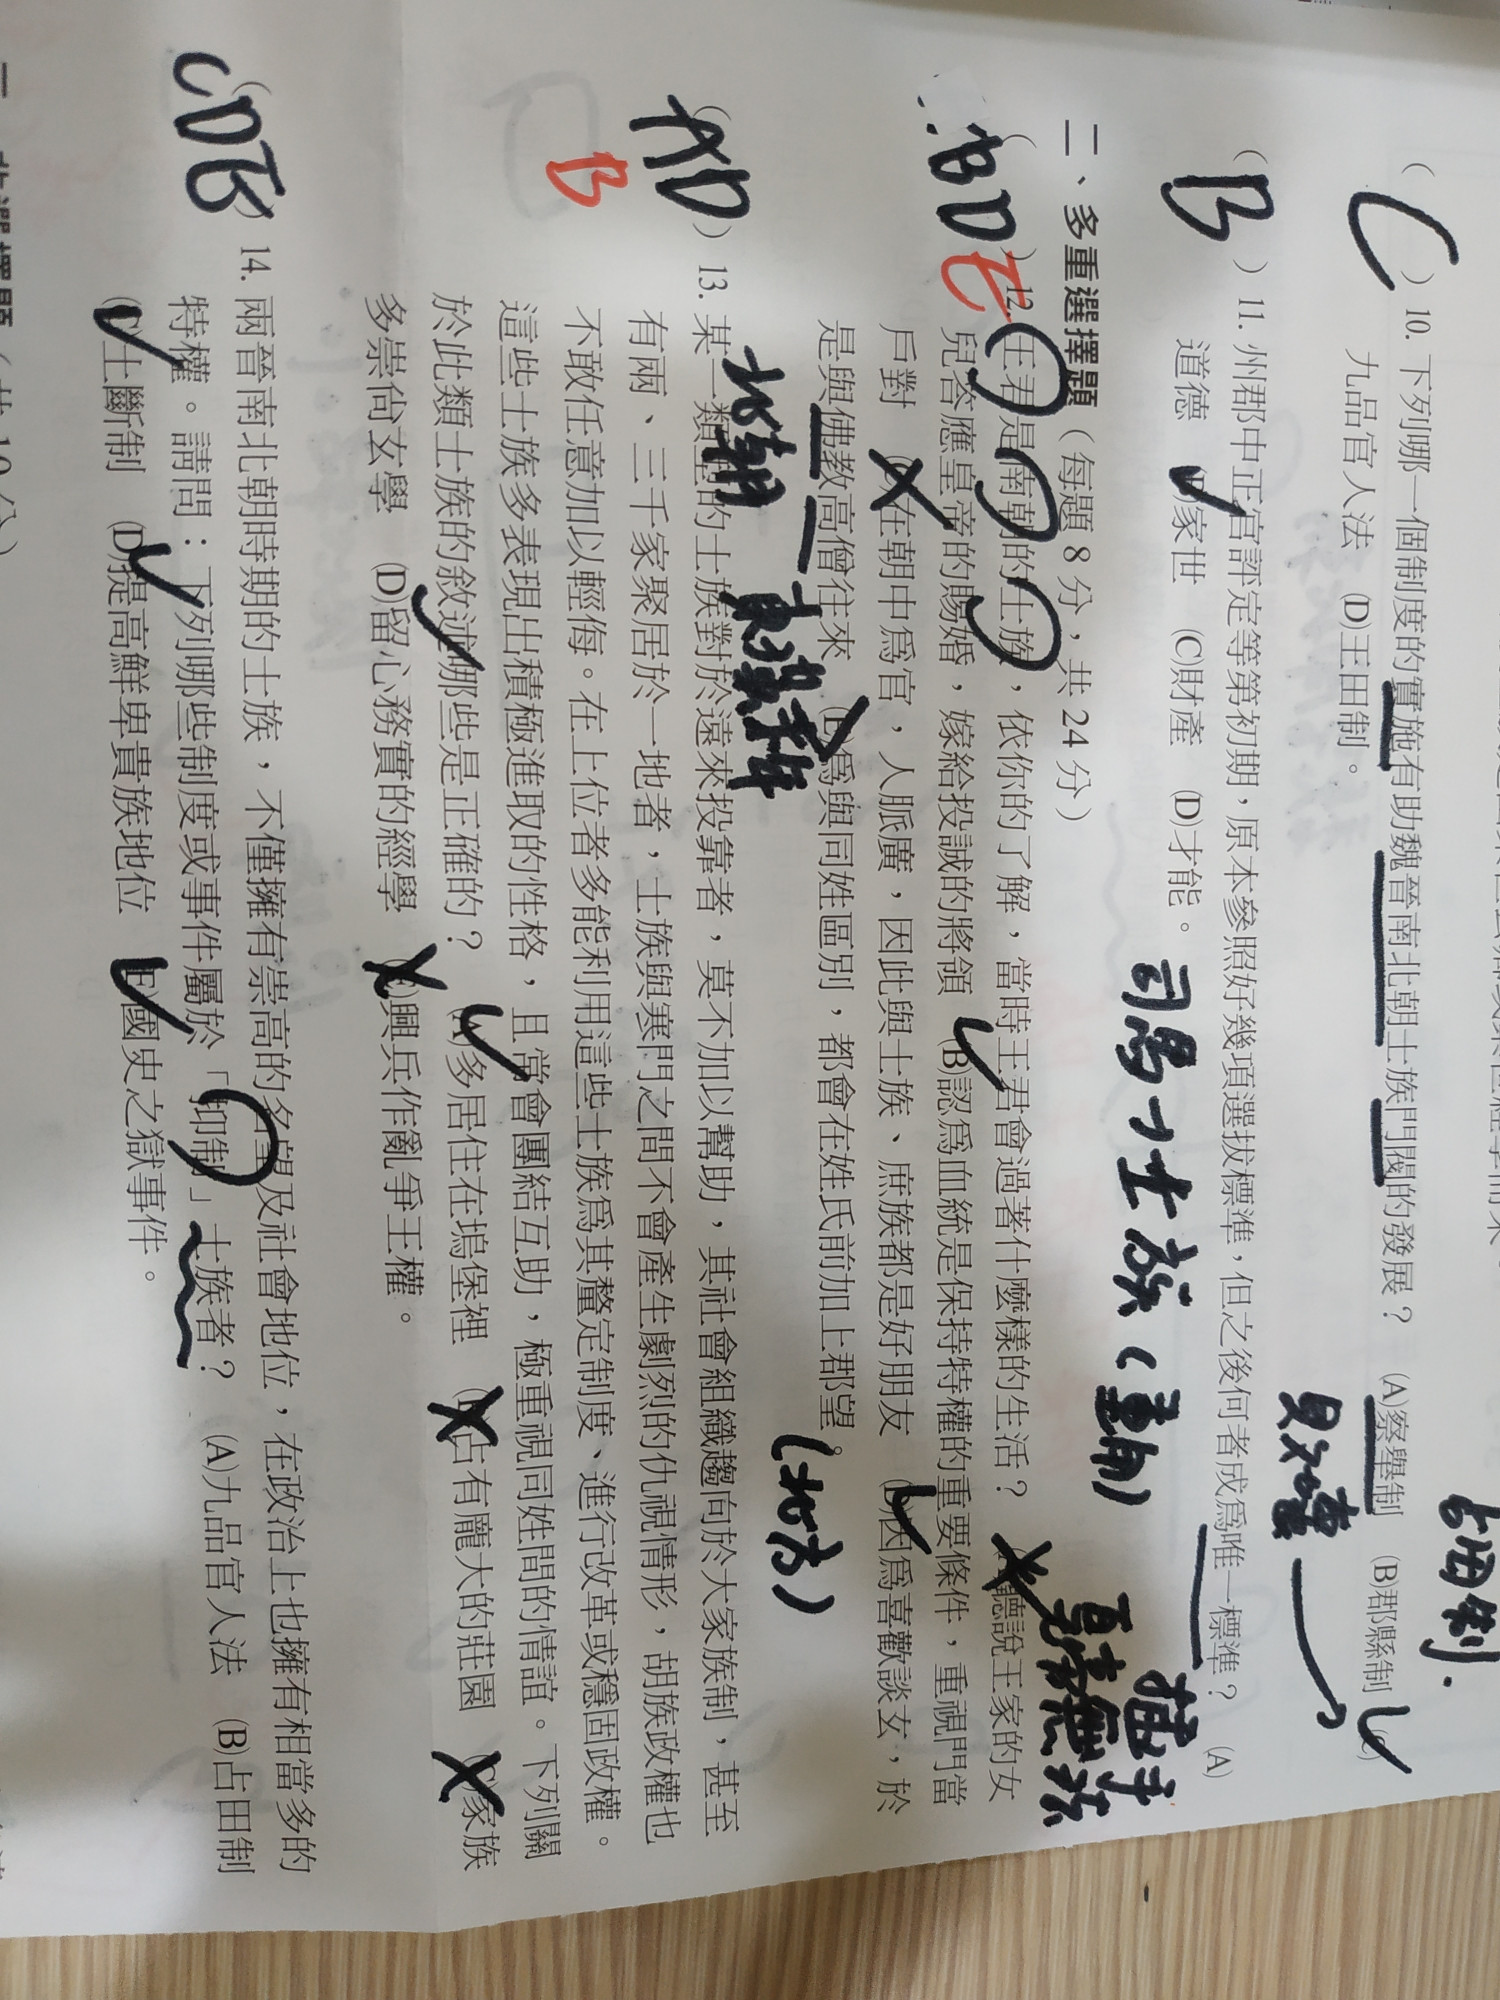 占田制.
C
( ) 10. 下列哪一個制度的實施有助魏晉南北朝士族門閥的發展？ (A)察舉制 (B)郡縣制
九品官人法 (D)王田制。
B
( ) 11. 州郡中正官評定等第初期，原本參照好幾項選拔標準，但之後何者成為唯一標準？ (A)
道德 家世 (C)財產 (D)才能。
二、多重選擇題（每題 8 分，共 24 分）
BD
E
( ) 12. 王君是南朝的士族，依你的了解，當時王君會過著什麼樣的生活？ 聽說王家的女
兒答應皇帝的賜婚，嫁給投誠的將領 (B)認為血統是保持特權的重要條件，重視門當
戶對 在朝中為官，人脈廣，因此與士族、庶族都是好朋友 (D)因為喜歡談玄，於
是與佛教高僧往來 (E)為與同姓區別，都會在姓氏前加上郡望。
北朝
(北方)
AD
B
( ) 13. 某一類型的士族對於遠來投靠者，莫不加以幫助，其社會組織趨向於大家族制，甚至
有兩、三千家聚居於一地者，士族與寒門之間不會產生劇烈的仇視情形，胡族政權也
不敢任意加以輕侮。在上位者多能利用這些士族為其釐定制度、進行改革或穩固政權。
這些士族多表現出積極進取的性格，且常會團結互助，極重視同姓間的情誼。下列關
於此類士族的敘述哪些是正確的？ (A)多居住在塢堡裡 占有龐大的莊園 家族
多崇尚玄學 (D)留心務實的經學 興兵作亂爭王權。
CDE
( ) 14. 兩晉南北朝時期的士族，不僅擁有崇高的名望及社會地位，在政治上也擁有相當多的
特權。請問：下列哪些制度或事件屬於「抑制」士族者？ (A)九品官人法 (B)占田制
土斷制 (D)提高鮮卑貴族地位 (E)國史之獄事件。